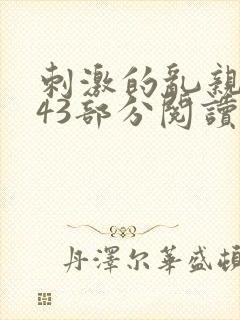 刺激的乱親
43部分閱讀
丹澤尔華盛頓